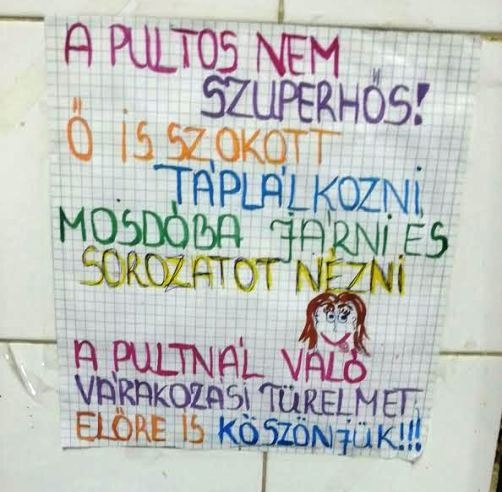 A PULTOS NEM
SZUPERHŐS!
Ő IS SZOKOTT
TÁPLÁLKOZNI,
MOSDÓBA JÁRNI ÉS
SOROZATOT NÉZNI
A PULTNÁL VALÓ
VÁRAKOZÁSI TÜRELMET,
ELŐRE IS KÖSZÖNJÜK!!!